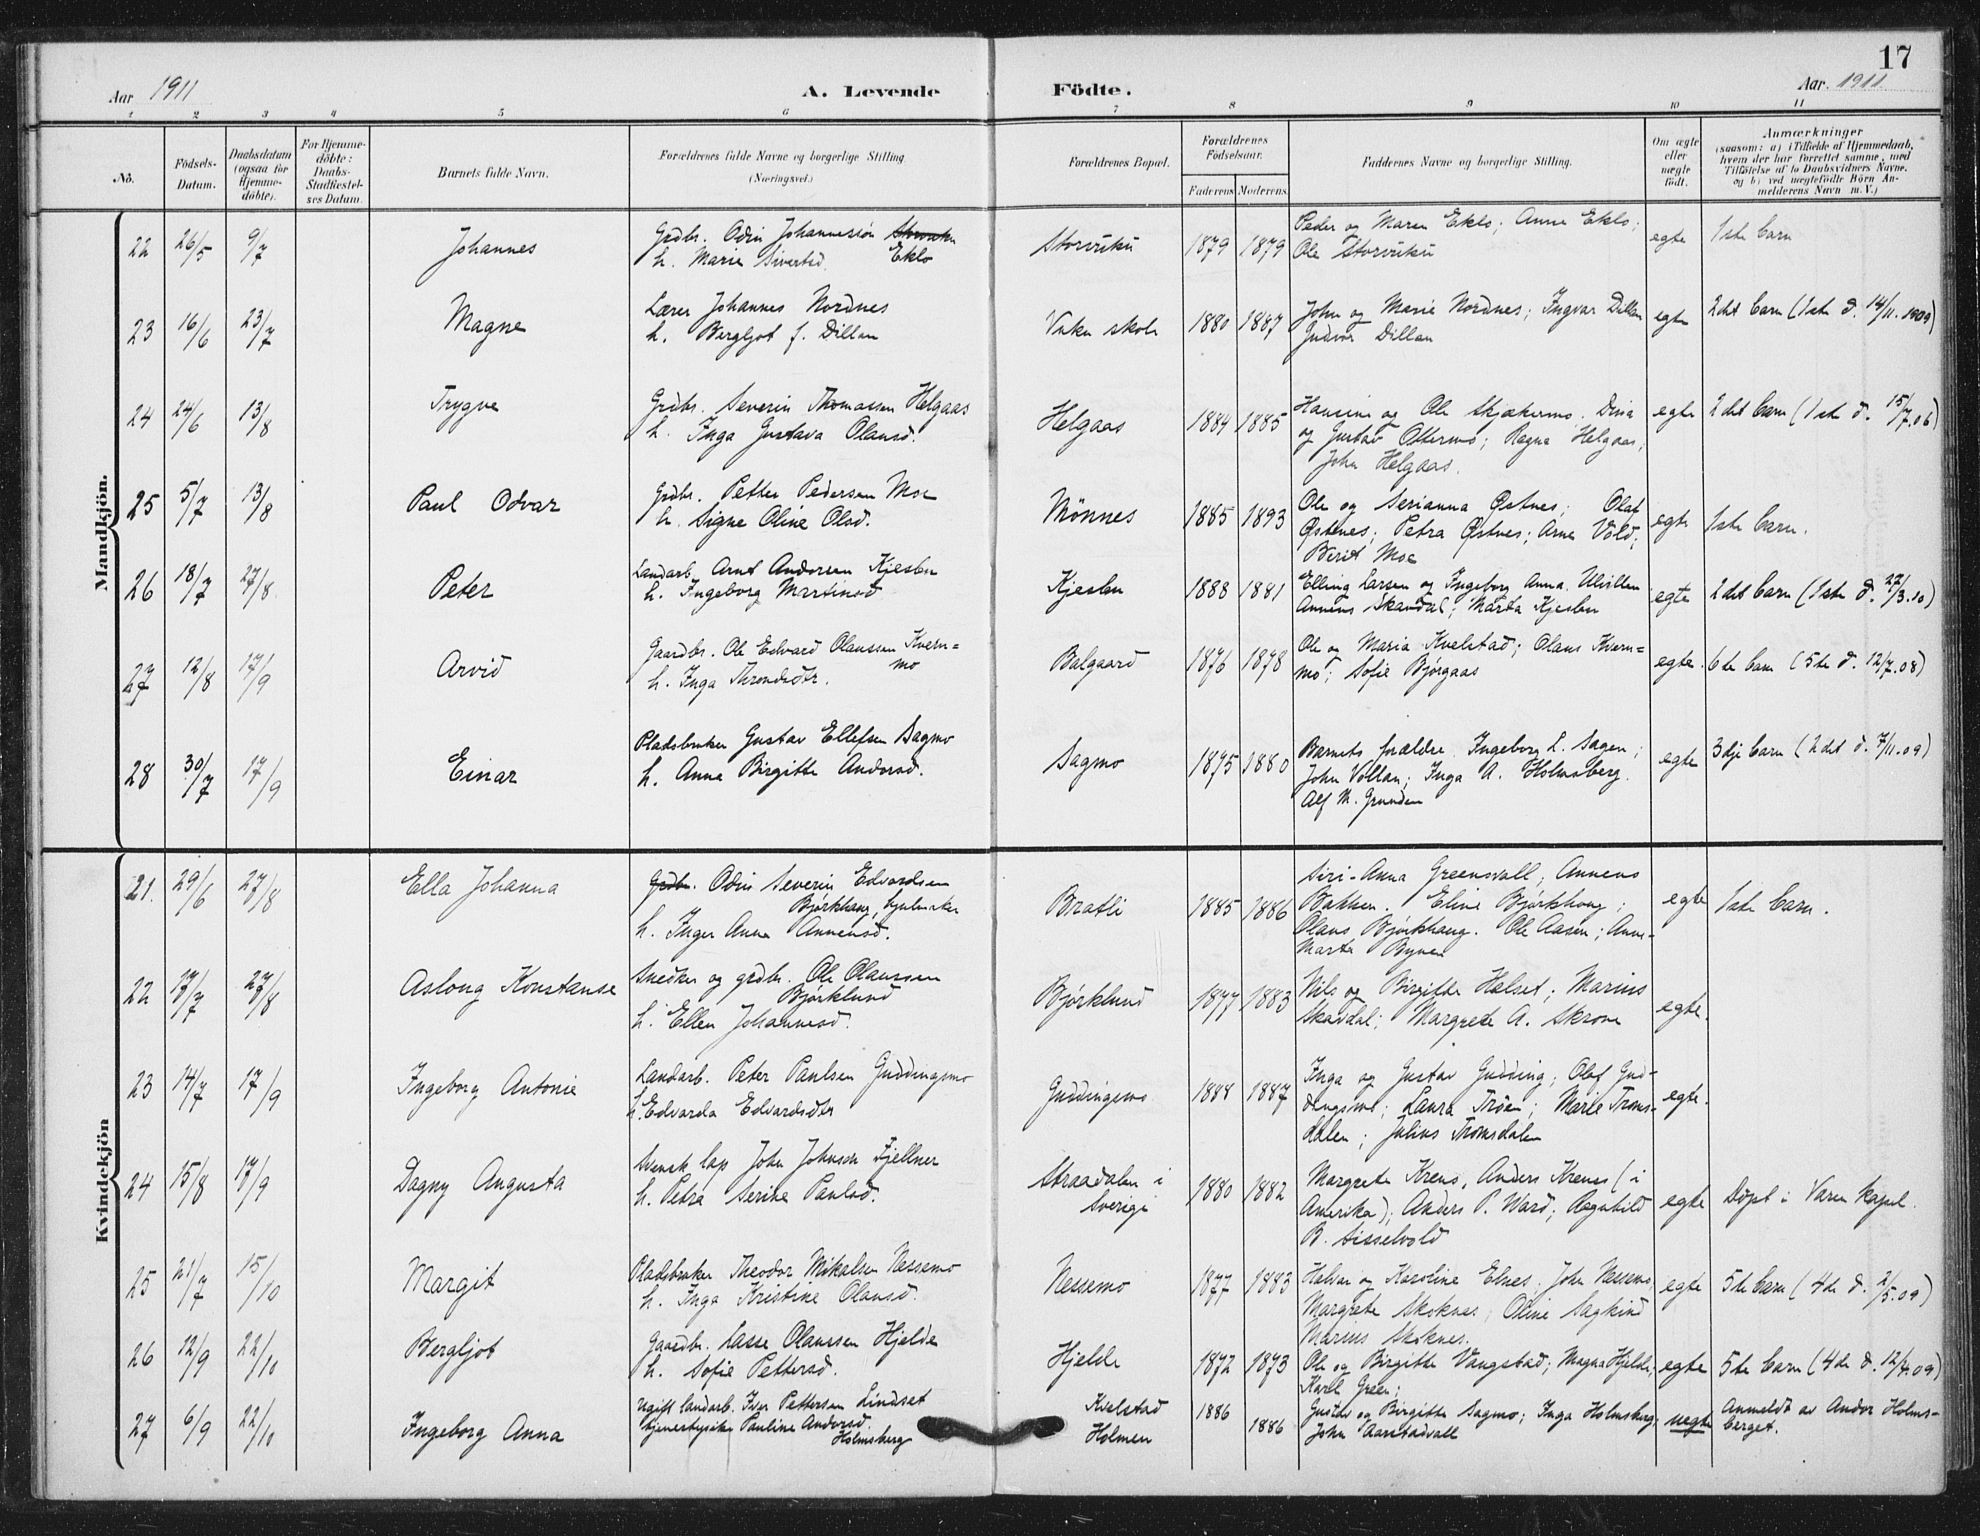 17
Aar 1911
A. Levende
Födte.
Aar. 1911.
1 2 3 4 5 6 7 8 9 10 11
No.
Födsels-
Datum.
Daabsdatum
(ogsaa for
Hjemme-
döbte).
For Hjemme-
döbte:
Daabs-
Stadfæstel-
ses Datum.
Barnets fulde Navn.
Forældrenes fulde Navne og borgerlige Stilling.
(Næringsvei.)
Forældrenes Bopæl.
Forældrenes
Födselsaar.
Faderens. Moderens.
Faddernes Navne og borgerlige Stilling.
Om ægte
eller
uægte
födt.
Anmærkninger
(saasom: a) i Tilfælde af Hjemmedaab,
hvem der har forrettet samme, med
Tilföielse af to Daabsvidners Navne.
og b) ved uægtefödte Börn An-
melderens Navn m.V.)
Mandkjön.
22 26/5 9/7 Johannes
Grdbr. Odin Johannessön
h. Marie Sivertsd. Eklo
Storviken 1879 1879
Peder og Maren Eklo; Anna Eklo;
Ole Storviken
egte 1ste barn
23 16/6 23/7 Magne
Lærer Johannes Nordnes
h. Bergljot f. Dillan
Vuku skole 1880 1887
John og Marie Nordnes; Ingvar Dillan
Gudvor Dillan
egte 2det barn (1ste d. 14/11. 1909)
24 24/6 13/8 Trygve
Grdbr. Severin Thomassen Helgaas
h. Inga Gustava Olausd.
Helgaas 1884 1885
Hansine og Ole Skjækermo. Dina
og Gustav Ottermo; Ragna Helgaas;
John Helgaas.
egte 2det barn (1ste d. 15/7.06)
25 5/7 13/8 Paul Odvar
Grdbr. Petter Pedersen Moe
h. Signe Oline Olsd.
Mönnes 1885 1893
Ole og Serianna Østnes; Olaf
Østnes; Petra Østnes; Arne Vold;
Berit Moe
egte 1ste barn.
26 18/7 27/8 Peter
Landarb. Arnt Andersen Kjesbu
h. Ingeborg Martinsd
Kjesbu 1888 1881
Elling Larsen og Ingeborg Anna Ulvillen
Annæus Skavdal; Marta Kjesbu
egte 2det barn (1ste d. 22/3.10)
27 12/8 17/9 Arvid
Gaardbr. Ole Edvard Olaussen Kvern-
mo
h. Inga Throndsdtr.
Balgaard 1876 1878
Ole og Maria Kvelstad; Olaus Kvern-
mo; Sofie Bjørgaas
egte. 6te barn (5te d. 12/7.08)
28 30/7 17/9 Einar
Pladsbruker Gustav Ellefsen Sagmo
h. Anna Birgitte Andersd.
Sagmo 1875 1880
Barnets forældre. Ingeborg L. Sagen;
John Vollan; Inga A. Holmsberg.
Alf M. Grunden
egte 3dje barn (2det d. 7/11.09)
Kvindekjön
21. 29/6 27/8 Ella Johanna
Grdbr. Odin Severin Edvardsen
Bjørkhaug, hjulmaker
h. Inger Anna Annæusd.
Bratli 1885 1886
Siri-Anna Greensvall; Annæus
Bakken. Eline Bjørkhaug;
Olaus Bjørkhaug. Ole Aasen; Anne-
Marta Bynen
egte 1ste barn.
22 17/7 27/8 Aslaug Konstanse
Snedker og grdbr. Ole Olaussen
Bjørklund
h. Ellen Johannesd.
Bjørklund 1877 1883
Nils og Birgitte Helset; Marius
Skavdal; Margrete A. Skrove
egte.
23 14/7 17/9 Ingeborg Antonie
Landarb. Peter Paulsen Guddingsmo
h. Edvarda Edvardsdtr
Guddingsmo 1888 1887
Inga og Gustav Gudding; Olaf Gud-
dingsmo; Laura Trøen; Marie Troms-
dalen; Julius Tromsdalen
egte.
24 15/8 17/9 Dagny Augusta
Svensk lap John Johnson Fjellner
h. Petra Serine Paulsd.
Straadalen i
Sverige
1880 1882
Margrete Krens, Anders Krenes (i
Amerika); Anders P. Ward; Ragnhild
B. Sisselvold
egte Døpt i Væren kapel.
25 21/7 15/10 Margit
Pladsbruker Theodor Mikalsen Nessemo
h. Inga Kristine Olausd.
Nessemo 1877 1883
Halvar og Karoline Elnes. John Nessemo
Margrete Skoknes; Oline Sagkind
Marius Skoknes.
egte 5te barn (4de d. 2/5.09)
26 12/9 22/10 Bergljot
Gaardbr. Lasse Olaussen Hjelde
h. Sofie Pettersd.
Hjelde 1872 1873
Ole og Birgitte Vangstad; Magna Hjelde,
Karl Green;
egte 5te barn (4de d. 12/4.09)
27 6/9 22/10 Ingeborg Anna
Ugift landarb. Iver Pettersen Lindset
tjenestepike Pauline Andersd.
Holmsberg
Kvelstad
Holmen
1886
1886
Gustav og Birgitte Sagmo; Inga Holmsberg;
John Aarstadvall
uegte
Anmeldt av Andor Holms-
berget.